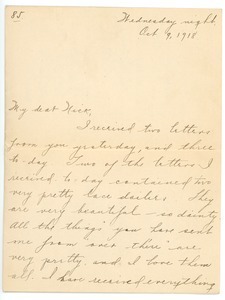 85
Wednesday night
Oct 9, 1918
My dear
I received two letters
from you yesterday, and three
to-day. Two of the letters I
received to-day contained two
very pretty lace doilies. They
are very beautiful - so dainty.
All the things you have sent
me from "over there" are
very pretty and I love them
all. I have received everything